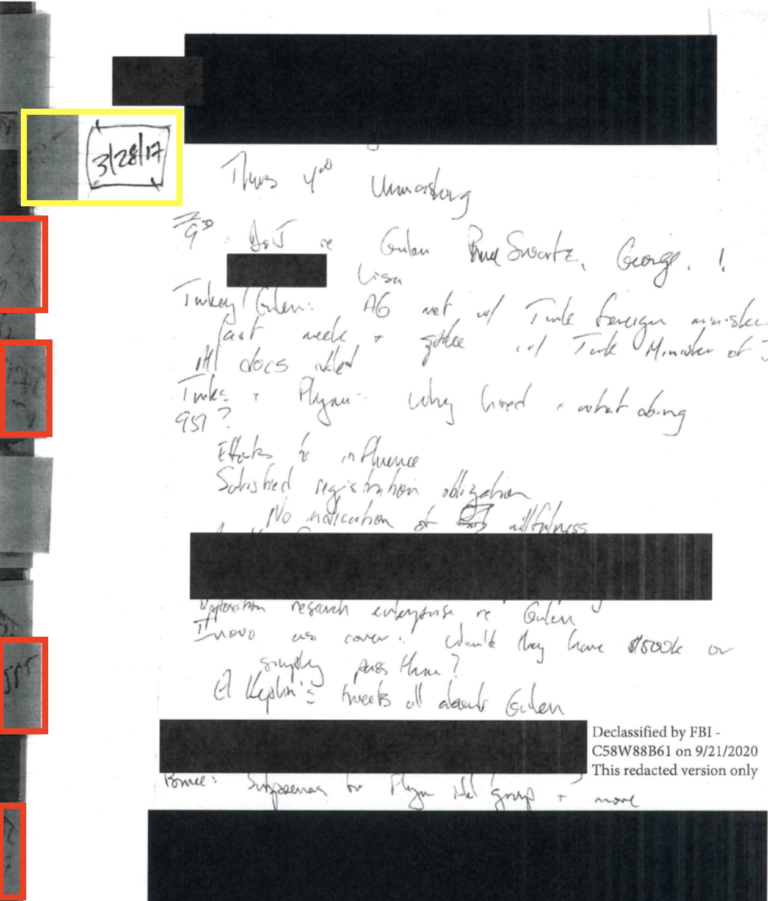 3/28/17
Thurs 4:00 Unmasking
9:30: DoJ re Gulen Bruce Swartz, George, !
Lisa
Turkey/Gulen: AG met w/ Turk foreign minister
last week + w/ Turk Minister of J
docs
Turks + Flynn: Why hired + what doing
951?
Efforts to influence
Satisfied registration obligation
No indication of willfulness
Opposition research enterprise re Gulen
Inovo as cover. Would they have $500k or
simply pass thru?
tweets all about Gulen
Declassified by FBI -
C58W88B61 on 9/21/2020
This redacted version only
Subpoenas for Flynn Intel group + more